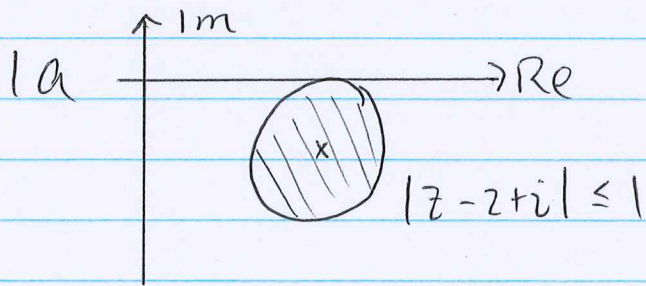 Im
1a
Re
|z-2+i| ≤ 1